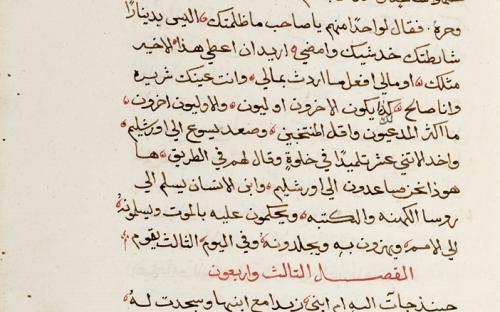 وحره فقال لواحدًا منهم يا صاحب ما ظلمتك اليس بدينارًا
شارطتك خد شيك وامضي اريد ان اعطي هذا الاخير
متلك او مالي افعل ما اردت بمالي وانت عينك شريره
وانا صالح كذا يكون الاخرون اوليون والاوليون اخرون
ما اكثر المدعيون واقل المنتجبين وصعد يسوع الي اورشليم
واخد الاتني عشر تلميدًا في خلوةٍ وقال لهم في الطريق ها
هودا نحن صاعدون الي اورشليم وابن الانسان يسلم الي
روسا الكهنه والكتبه ويحكمون عليه بالموت ويسلمونهُ
الي الامم ويهزون بهِ ويجلدونهُ وفي اليوم الثالث يقوم
الفصل الثالث واربعون
حينيد جات اليه ام ابني زبدا مع ابنيها وسجدت لهُ